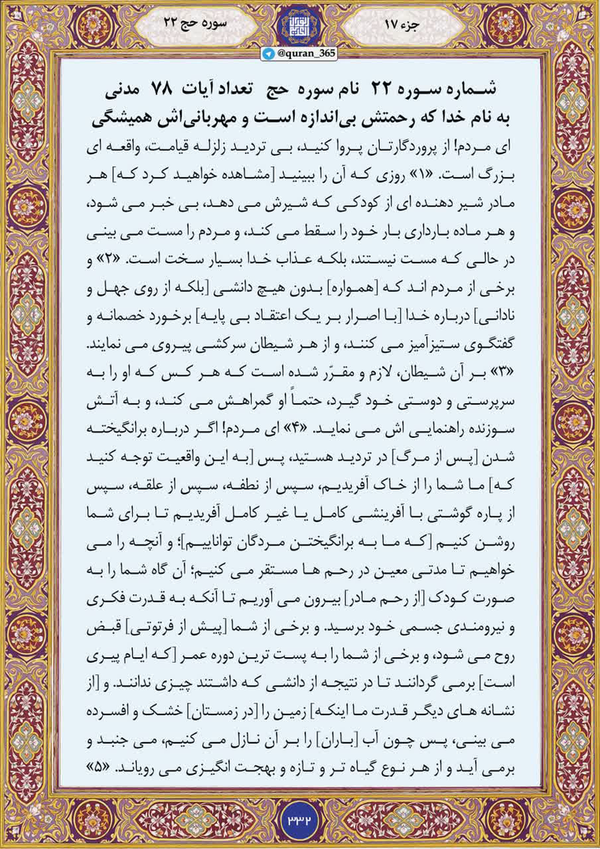 جزء ۱۷
سوره حج ۲۲
@quran_365
شـماره سـوره ۲۲ نام سوره حج تعداد آیات ۷۸ مدنی
به نام خدا که رحمتش بی‌اندازه اسـت و مهربانی‌اش همیشگی
ای مردم! از پروردگارتان پروا کنید، بی تردید زلزله قیامت، واقعه ای
بزرگ است. «۱» روزی که آن را ببینید [مشاهده خواهید کرد که] هر
مادر شیر دهنده ای از کودکی که شیرش می دهد، بی خبر می شود،
و هر ماده بارداری بار خود را سقط می کند، و مردم را مست می بینی
در حالی که مست نیستند، بلکه عذاب خدا بسیار سخت است. «۲» و
برخی از مردم اند که [همواره] بدون هیچ دانشی [بلکه از روی جهل و
نادانی] درباره خدا [با اصرار بر یک اعتقاد بی پایه] برخورد خصمانه و
گفتگوی ستیزآمیز می کنند، و از هر شیطان سرکشی پیروی می نمایند.
«۳» بر آن شیطان، لازم و مقرّر شده است که هر کس که او را به
سرپرستی و دوستی خود گیرد، حتماً او گمراهش می کند، و به آتش
سوزنده راهنمایی اش می نماید. «۴» ای مردم! اگر درباره برانگیخته
شدن [پس از مرگ] در تردید هستید، پس [به این واقعیت توجه کنید
که] ما شما را از خاک آفریدیم، سپس از نطفه، سپس از علقه، سپس
از پاره گوشتی با آفرینشی کامل یا غیر کامل آفریدیم تا برای شما
روشن کنیم [که ما به برانگیختن مردگان تواناییم]؛ و آنچه را می
خواهیم تا مدتی معین در رحم ها مستقر می کنیم؛ آن گاه شما را به
صورت کودک [از رحم مادر] بیرون می آوریم تا آنکه به قدرت فکری
و نیرومندی جسمی خود برسید. و برخی از شما [پیش از فرتوتی] قبض
روح می شود، و برخی از شما را به پست ترین دوره عمر [که ایام پیری
است] برمی گردانند تا در نتیجه از دانشی که داشتند چیزی ندانند. و [از
نشانه های دیگر قدرت ما اینکه] زمین را [در زمستان] خشک و افسرده
می بینی، پس چون آب [باران] را بر آن نازل می کنیم، می جنبد و
برمی آید و از هر نوع گیاه تر و تازه و بهجت انگیزی می رویاند. «۵»
۳۳۲